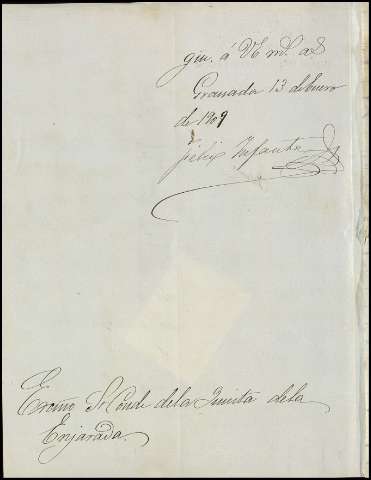 gue. á VE ms. as
Granada 13 de Enero
de 1909
Felix Infante
Excmo Sr Conde de la Quinta de la
Enjarada.